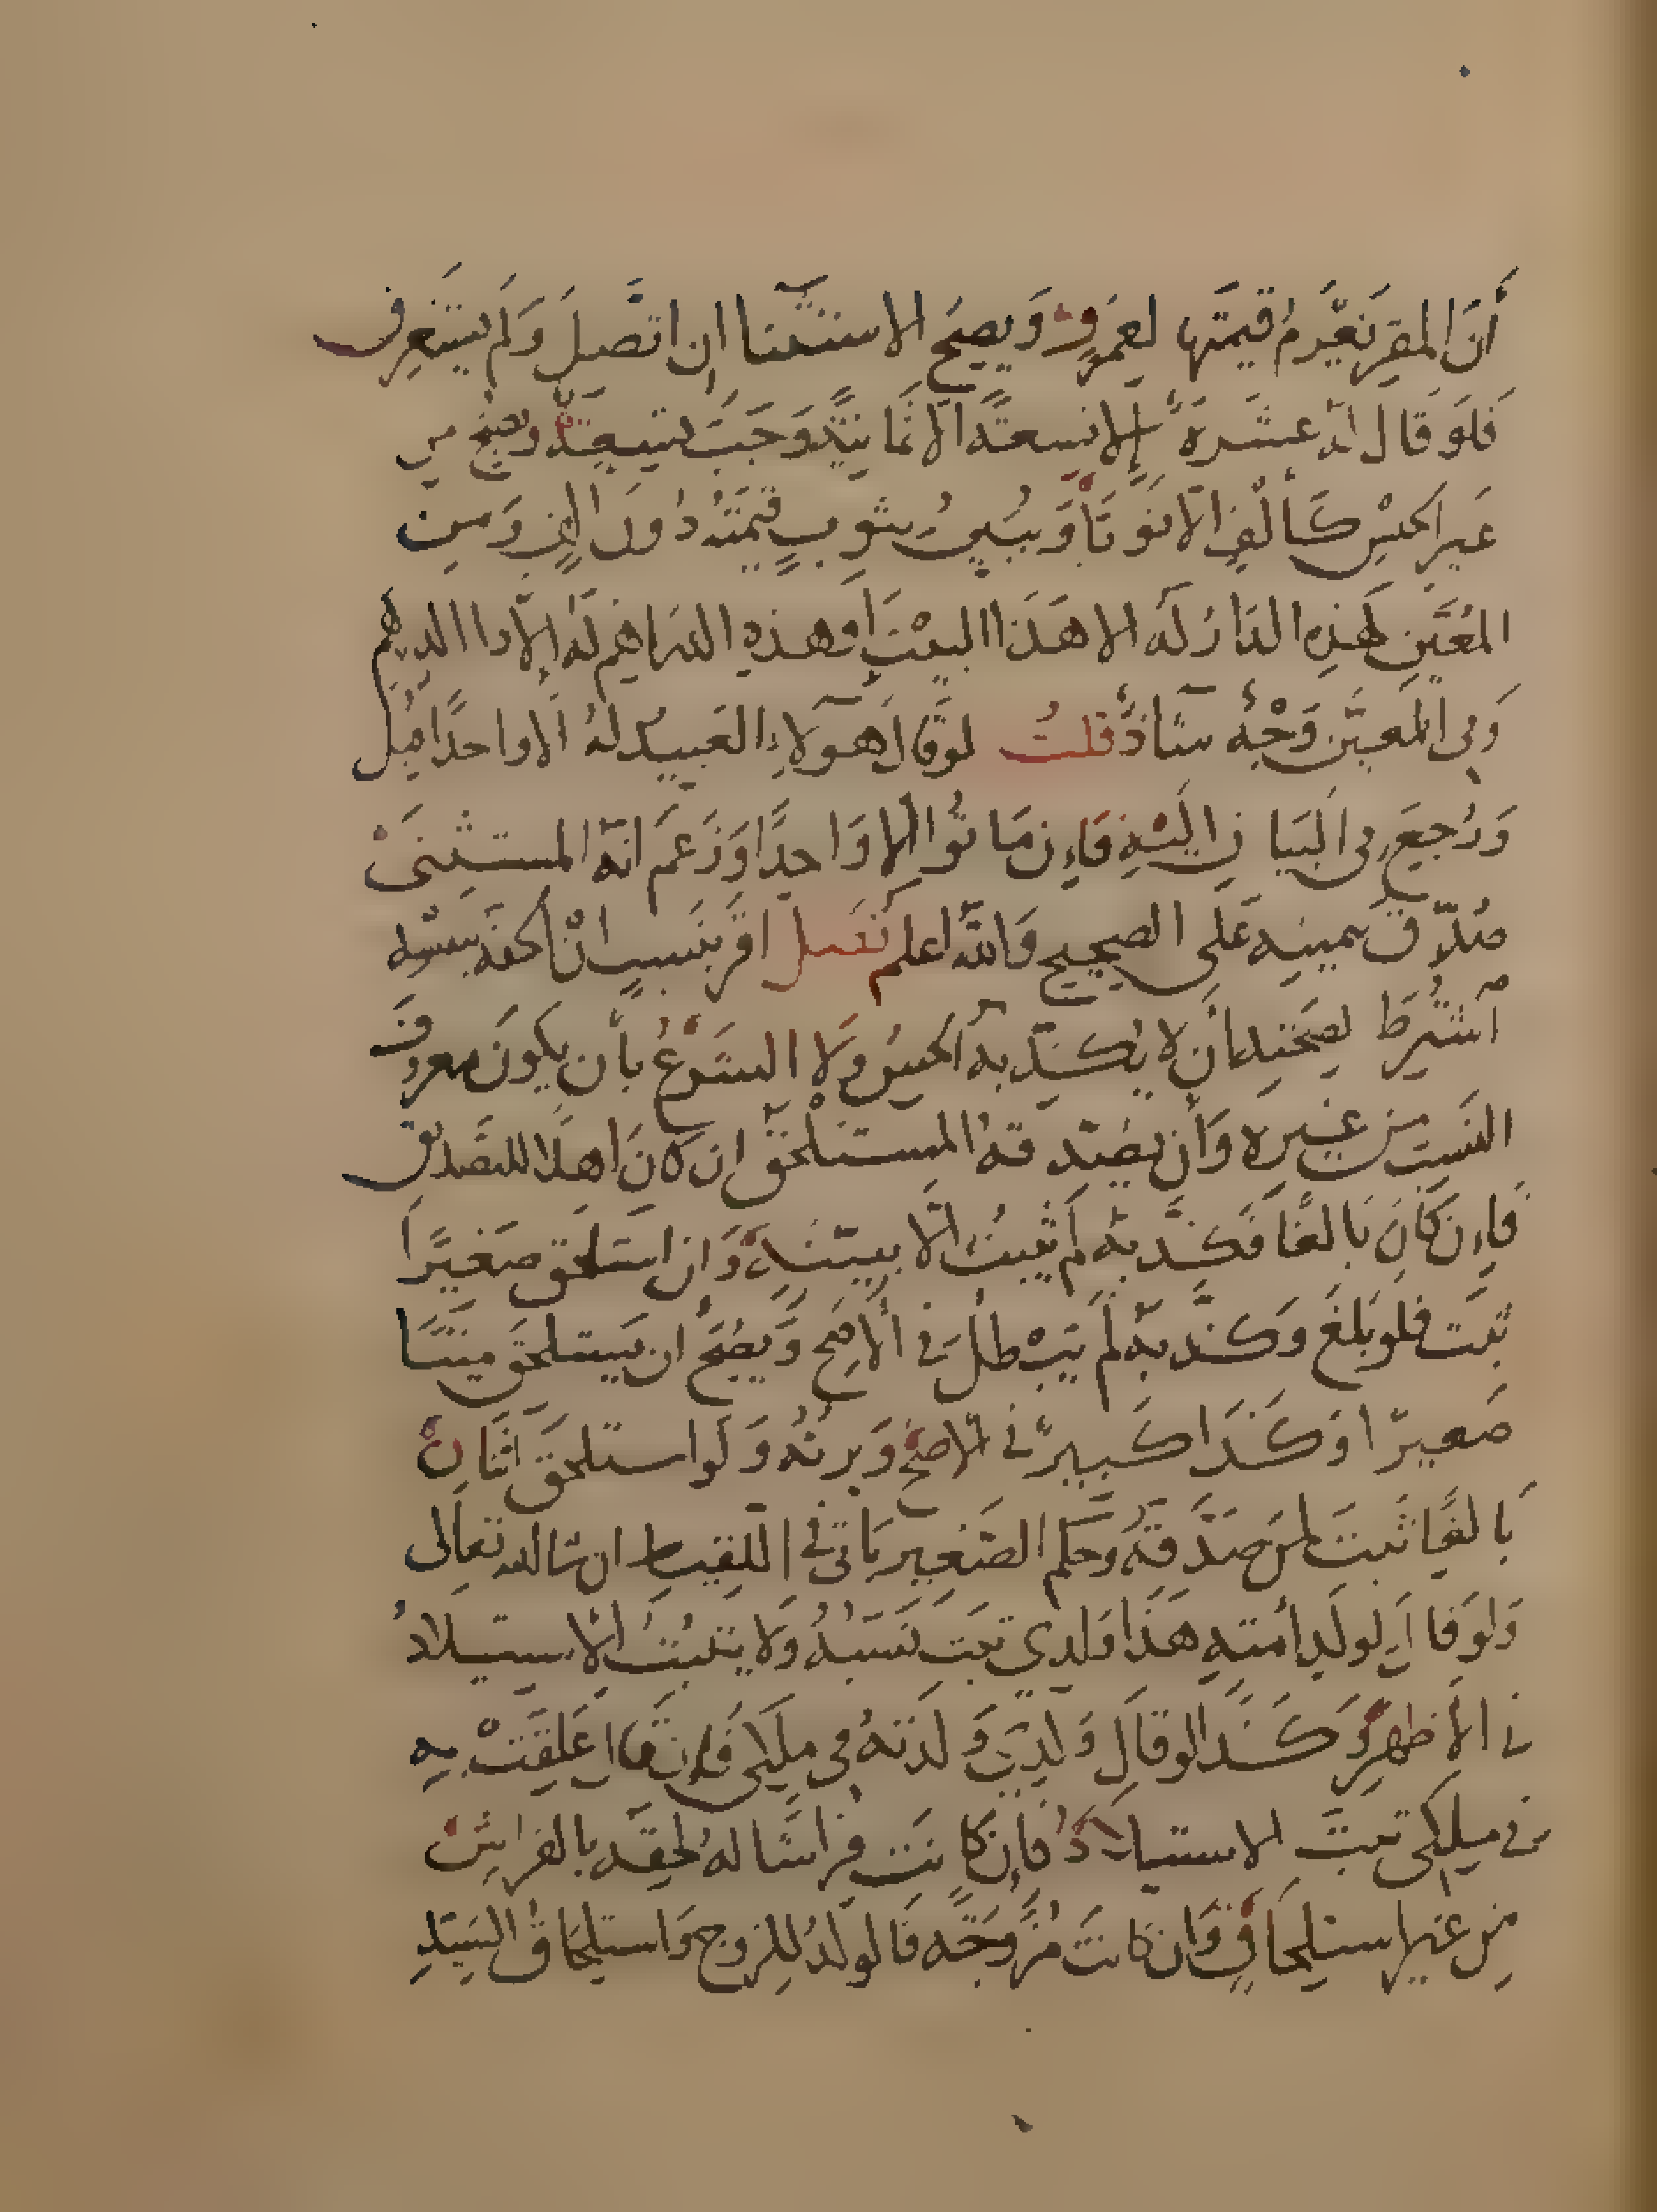 أن المقر يغرم قيمتها لعمرو ويصح الاستثنا ان اتصل ولم يستغرق
فلو قال له عشرة إلا تسعة الا ثمانية وجب تسعة ويصح من
غير الجنس كألف الا ثوبا ويبين بثوب قيمته دون الف ومن
المعين كهذه الدار له الا هذا البيت او هذه الدراهم له إلا ذا الدرهم
وفى المعين وجه شاذ قلت لو قال هولاء العبيد له الا واحدا قبل
ورجع فى البيان اليه فان ماتوا الا واحدا وزعم انه المستثنى
صدق بيمينه على الصحيح والله اعلم فصل اقر بنسب ان ألحقه بنفسه
اشترط لصحته أن لا يكذبه الحس ولا الشرع بأن يكون معروف
النسب من غيره وأن يصدقه المستلحق ان كان اهلا للتصديق
فإن كان بالغا فكذبه لم يثبت الا ببينة وان استلحق صغيرا
ثبت فلو بلغ وكذبه لم يبطل في الاصح ويصح ان يستلحق ميتا
صغيرا وكذا كبير في الاصح ويرثه ولو استلحق اثنان
بالغا ثبت لمن صدقه وحكم الصغير ياتي في اللقيط ان شا الله تعالى
ولو قال لولد أمته هذا ولدي ثبت نسبه ولا يثبت الاستيلاد
في الأظهر وكذا لو قال ولدي ولدته في ملكي فإن قال علقت به
في ملكي ثبت الاستيلاد فإن كانت فراشا له لحقه بالفراش
من غير استلحاق وان كانت مزوجة فالولد للزوج واستلحاق السيد